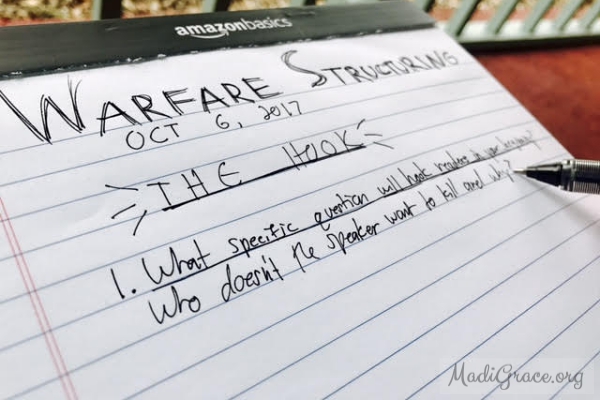 amazonbasics
WARFARE STRUCTURING
OCT 6, 2017
THE HOOK
1. What specific question will hook readers
Who doesn't the speaker want to kill and why?
MadiGrace.org